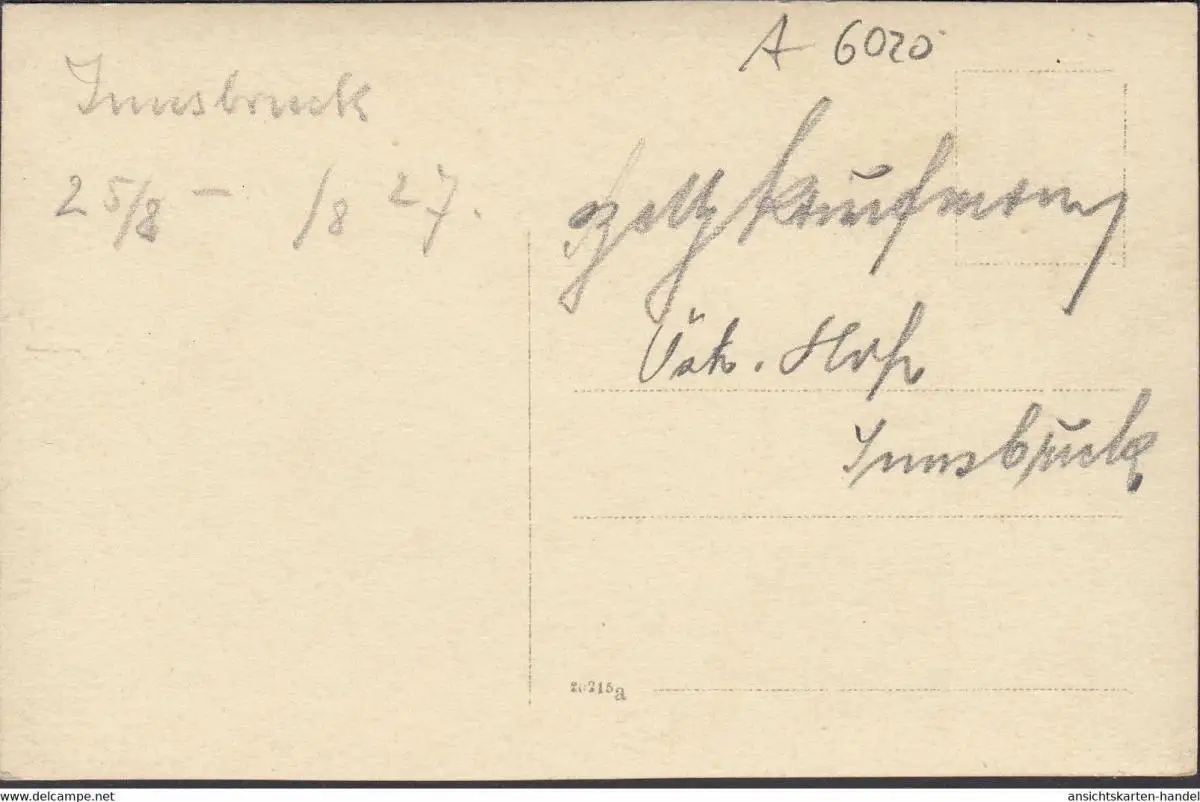 A 6020
Innsbruck
25/8 – /8 27.
Kaufmann
Öst. Hof
Innsbruck
20215a
www.delcampe.net
ansichtskarten-handel